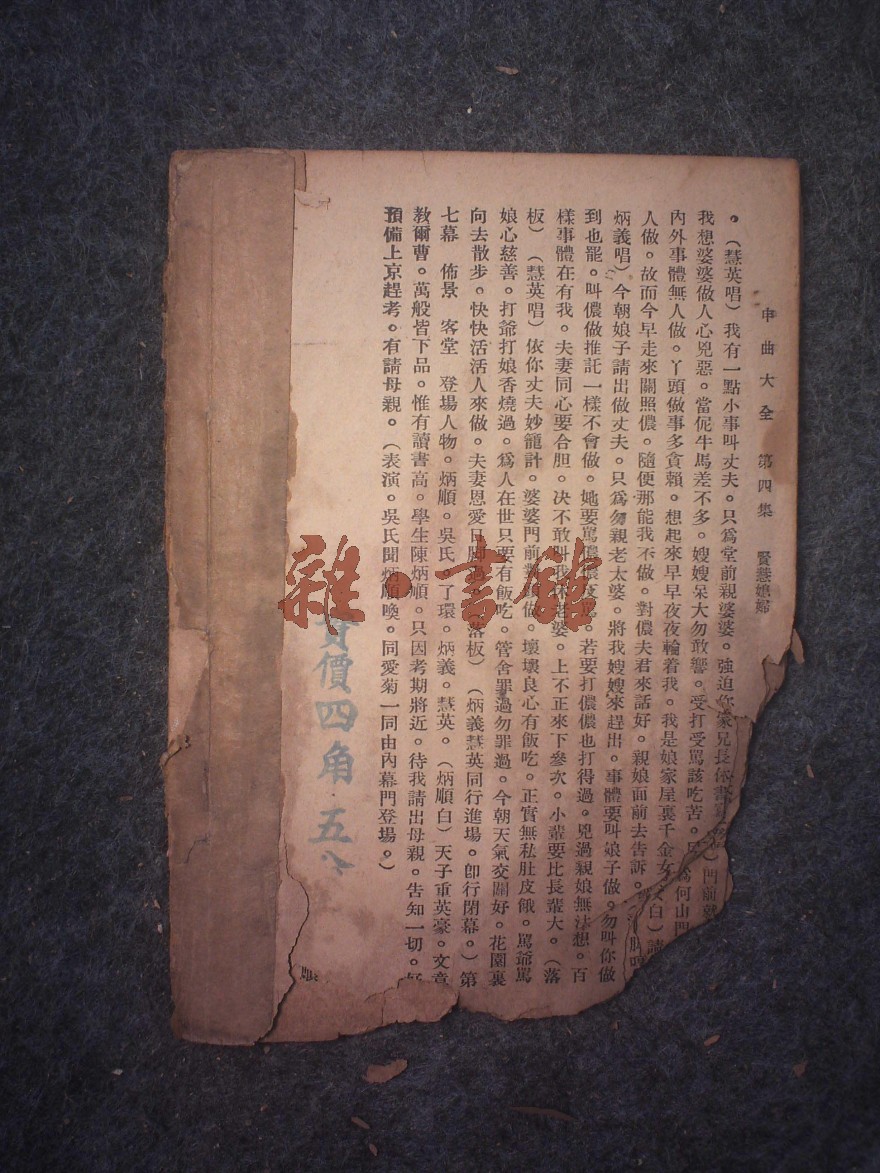 申曲大全 第四集 賢慧媳婦
。(慧英唱)我有一點小事叫丈夫。只爲堂前親婆婆。強迫你家兄長
我想婆婆做人心兇惡。當伲牛馬差不多。嫂嫂呆大勿敢響。受打受罵該吃苦。
內外事體無人做。丫頭做事多貪賴。想起來早早夜夜輪着我。我是娘家屋裏千金女
人做。故而今早走來關照儂。隨便那能我不做。對儂夫君來話好。親娘面前去告訴。
炳義唱)今朝娘子請出做丈夫。只爲勿親老太婆。將我嫂嫂來趕出。事體要叫娘子做。勿叫你做
到也罷。叫儂做推託一樣不會做。她要罵儂儂 罵。若要打儂儂也打得過。兇過親娘無法想。百
樣事體在有我。夫妻同心要合胆。决不敢叫我 老婆。上不正來下參次。小輩要比長輩大。(落
板)(慧英唱)依你丈夫妙籠計。婆婆門前 做。壞壞良心有飯吃。正實無私肚皮餓。罵爺罵
娘心慈善。打爺打娘香燒過。爲人在世只要有飯吃。管舍罪過勿罪過。今朝天氣交關好。花園裏
向去散步。快快活活人來做。夫妻恩愛日 落板)(炳義慧英同行進場。卽行閉幕。)第
七幕 佈景 客堂 登場人物。炳順。吳氏 了環。炳義。慧英。(炳順白)天子重英豪。文章
教爾曹。萬般皆下品。惟有讀書高。學生陳炳順。只因考期將近。待我請出母親。告知一切。好
預備上京趕考。有請母親。(表演。吳氏聞炳順喚。同愛菊一同由內幕門登場。)
價四角.五分
雜·書館